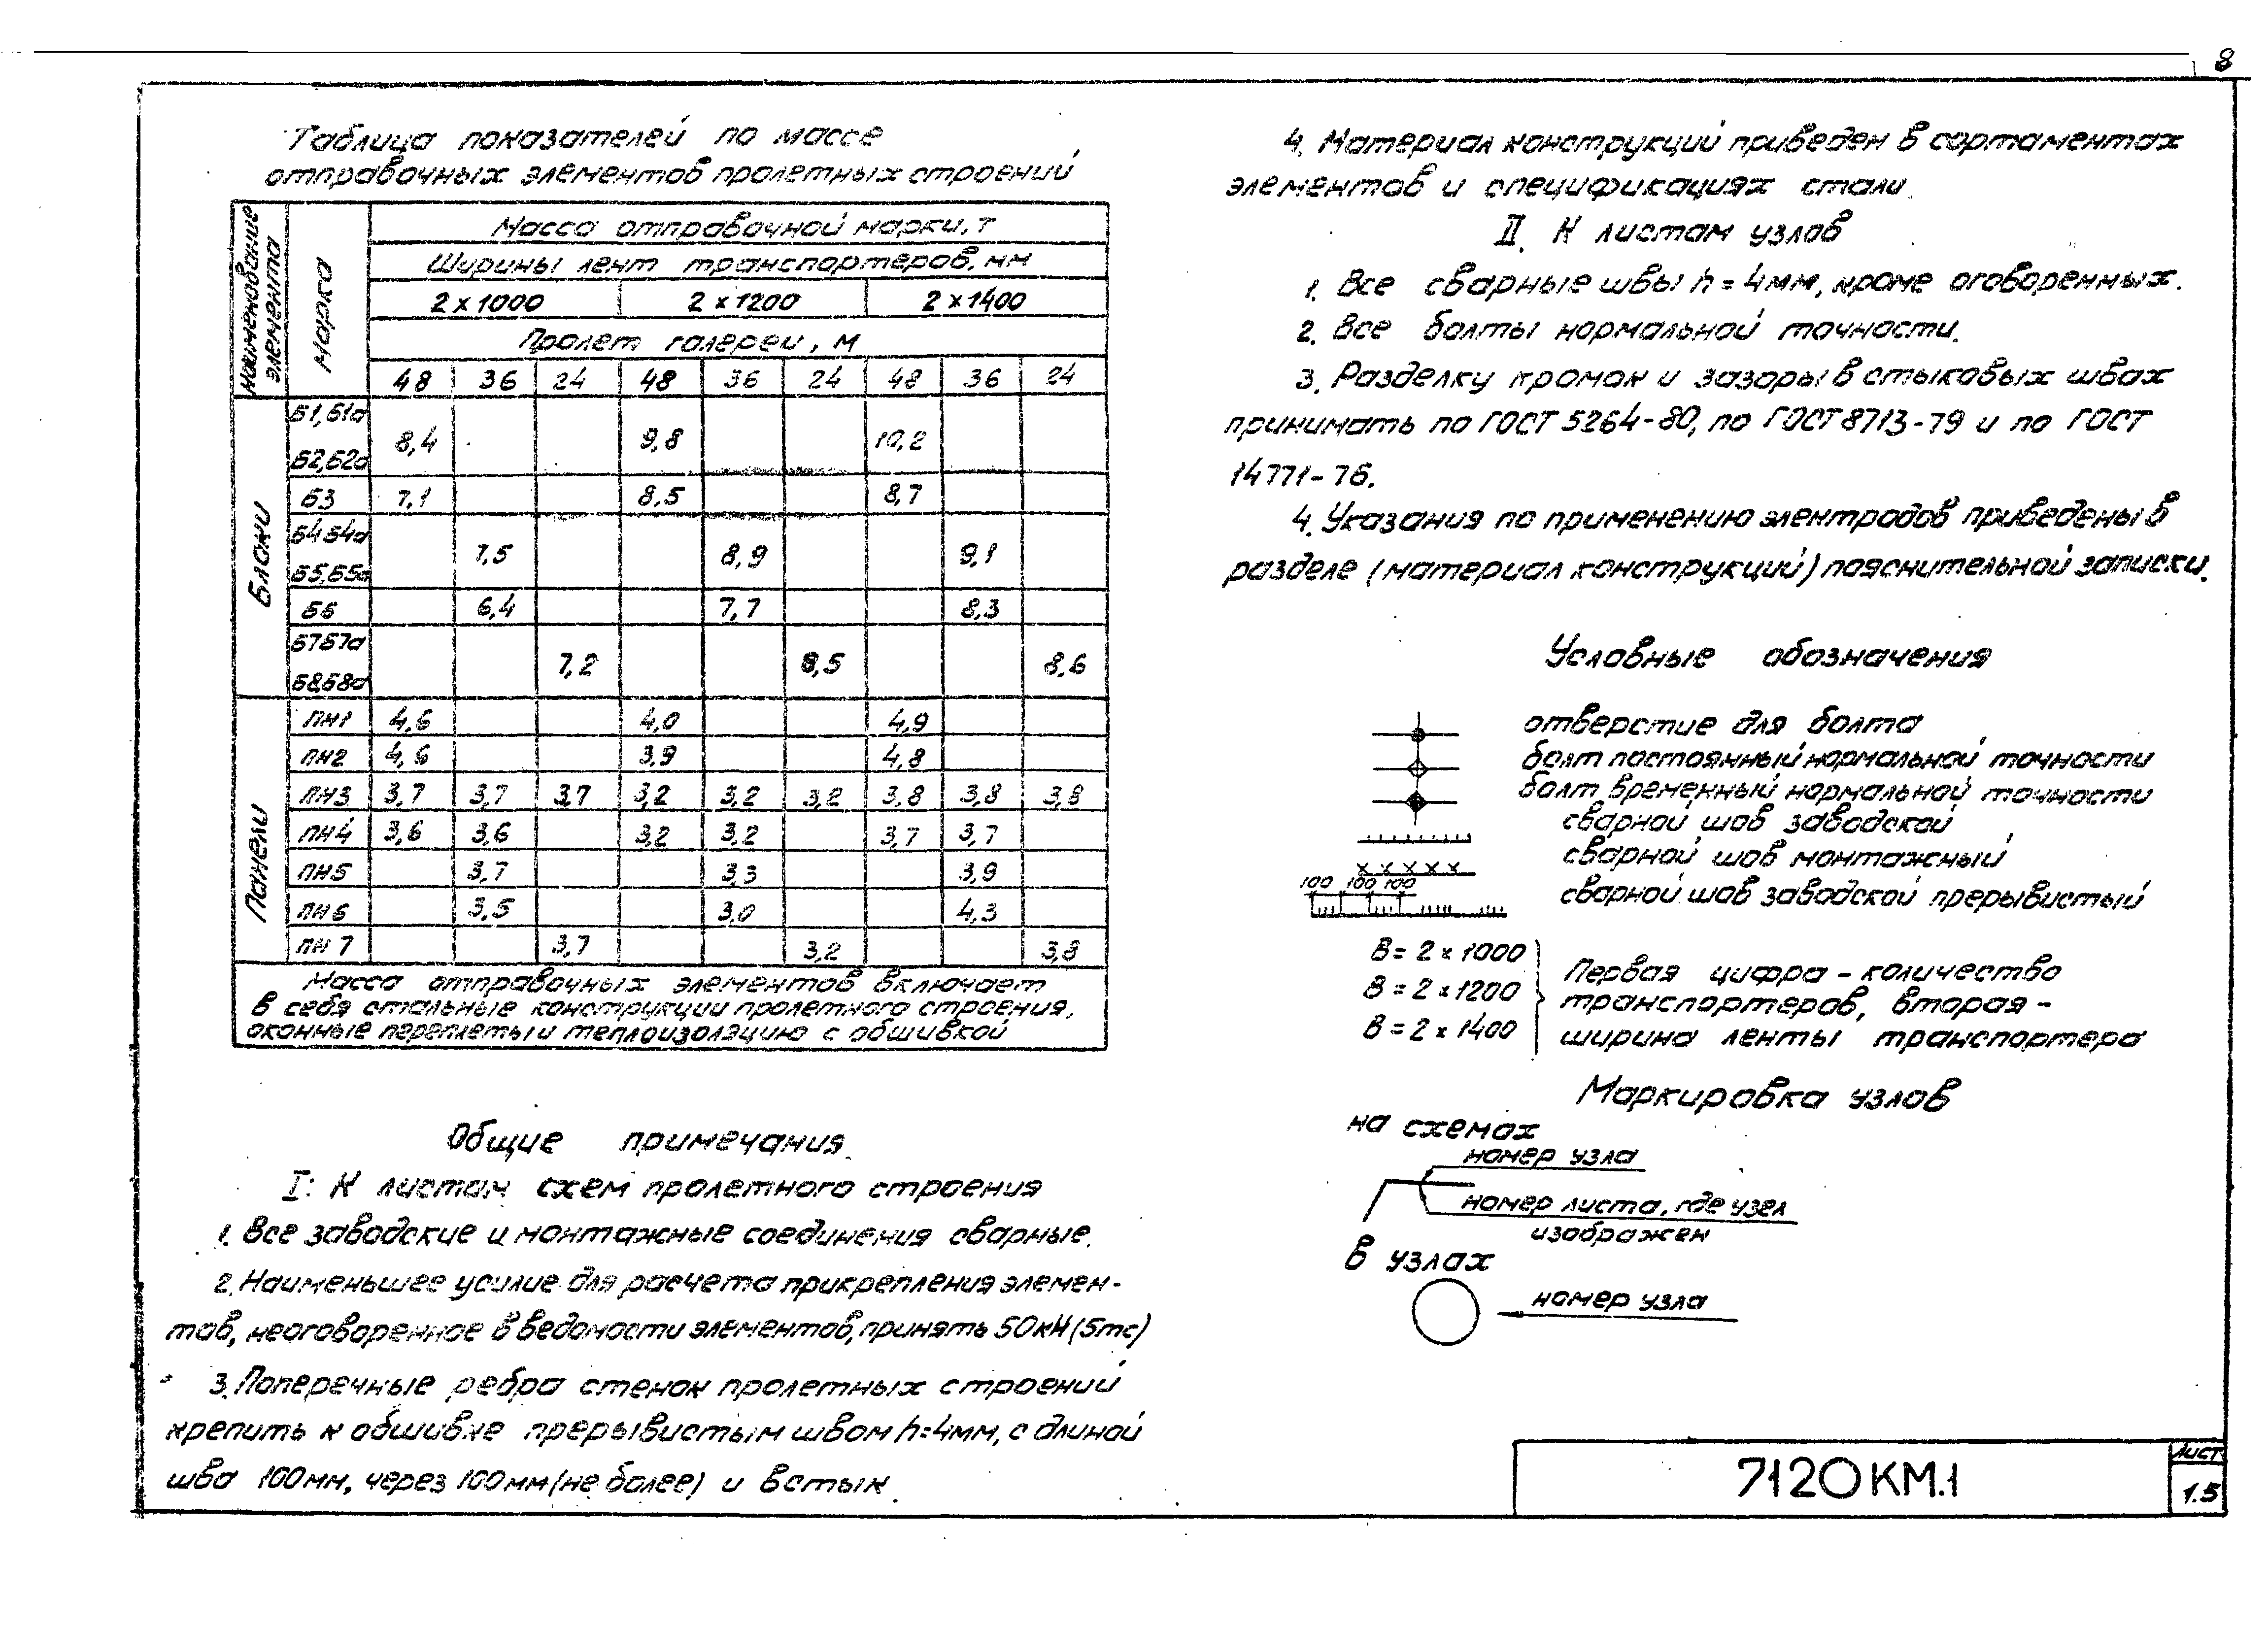 8
Таблица показателей по массе
отправочных элементов пролетных строений
Наименование элемента
Марка
Масса отправочной марки, т
Ширины лент транспортеров, мм
2 х 1000 2 х 1200 2 х 1400
Пролет галереи, м
48 36 24 48 36 24 48 36 24
Блоки
Б1,Б1а
Б2,Б2а
8,4 9,8 10,2
Б3 7,1 8,5 8,7
Б4 Б4а
Б5,Б5а
7,5 8,9 9,1
Б6 6,4 7,7 8,3
Б7 Б7а
Б8,Б8а
7,2 8,5 8,6
Панели
ПН1 4,6 4,0 4,9
ПН2 4,6 3,9 4,8
ПН3 3,7 3,7 3,7 3,2 3,2 3,2 3,8 3,8 3,8
ПН4 3,6 3,6 3,2 3,2 3,7 3,7
ПН5 3,7 3,3 3,9
ПН6 3,5 3,0 4,3
ПН 7 3,7 3,2 3,8
Масса отправочных элементов включает
в себя стальные конструкции пролетного строения,
оконные переплеты и теплоизоляцию с обшивкой
Общие примечания.
I. К листам схем пролетного строения
1. Все заводские и монтажные соединения сварные.
2. Наименьшее усилие для расчета прикрепления элемен-
тов, неоговоренное в ведомости элементов, принять 50кН (5тс)
3. Поперечные ребра стенок пролетных строений
крепить к обшивке прерывистым швом h=4мм, с длиной
шва 100мм, через 100мм (не более) и встык.
4. Материал конструкций приведен в сортаментах
элементов и спецификациях стали.
II. К листам узлов
1. Все сварные швы h = 4мм, кроме оговоренных.
2. Все болты нормальной точности.
3. Разделку кромок и зазоры в стыковых швах
принимать по ГОСТ 5264-80, по ГОСТ 8713-79 и по ГОСТ
14771-76.
4. Указания по применению электродов приведены в
разделе (материал конструкций) пояснительной записки.
Условные обозначения
отверстие для болта
болт постоянный нормальной точности
болт временный нормальной точности
сварной шов заводской
сварной шов монтажный
100 100 100
сварной шов заводской прерывистый
В = 2 х 1000
В = 2 х 1200
В = 2 х 1400
Первая цифра - количество
транспортеров, вторая -
ширина ленты транспортера
Маркировка узлов
на схемах
номер узла
номер листа, где узел
изображен
в узлах
номер узла
7120КМ.1
Лист
1.5